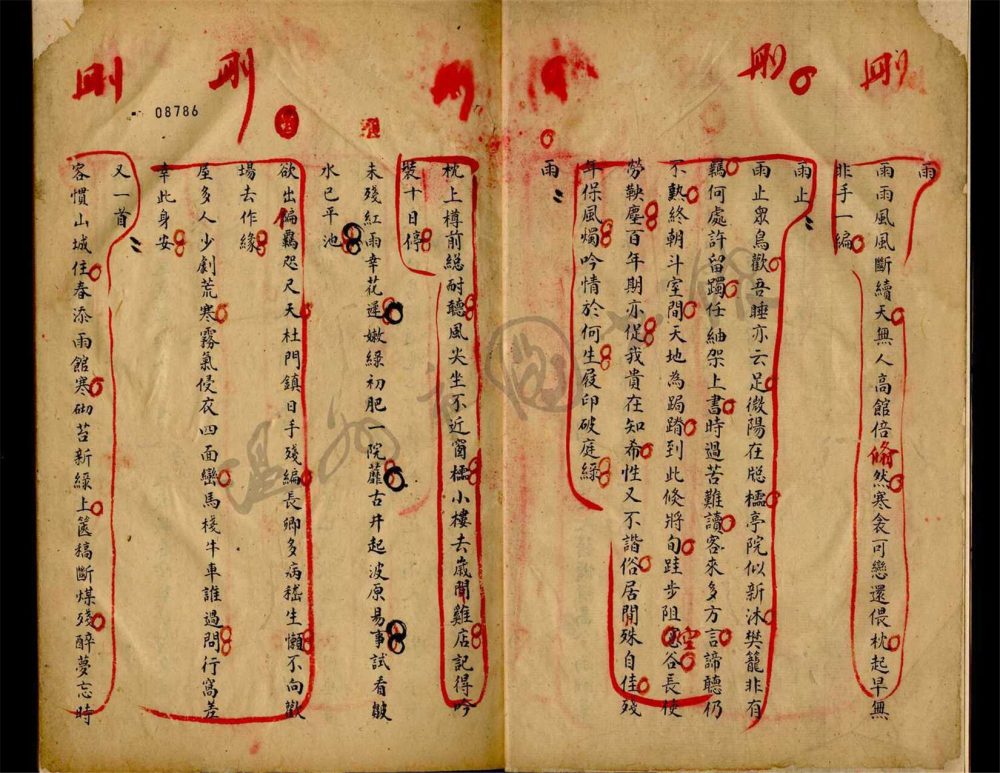 剛
剛
剛
剛
08786
雨
雨雨風風斷續天無人高館倍翛然寒衾可戀還偎枕起早無
非手一編
雨止
雨止眾鳥歡吾睡亦云足微陽在牕櫺亭院似新沐樊籠非有
羈何處許留躅任紬架上書時過苦難讀客來多方言諦聽仍
不熟終朝斗室間天地為跼蹐到此倏將旬跬步阻空谷長使
勞鞅塵百年期亦促我貴在知希性又不諧俗居閒殊自佳殘
年保風燭吟情於何生屐印破庭綠
雨
枕上樽前總耐聽風尖坐不近窗櫺小樓去歲閒雞店記得吟
裝十日停
未殘紅雨幸花遲嫩綠初肥一院蘼古井起波原易事試看皴
水已平池
欲出偏羈咫尺天杜門鎮日手殘編長卿多病嵇生懶不向歡
場去作緣
屋多人少劇荒寒霧氣侵衣四面巒馬棧牛車誰過問行窩差
幸此身安
又一首
客慣山城住春添雨館寒砌苔新綠上篋稿斷煤殘醉夢忘時